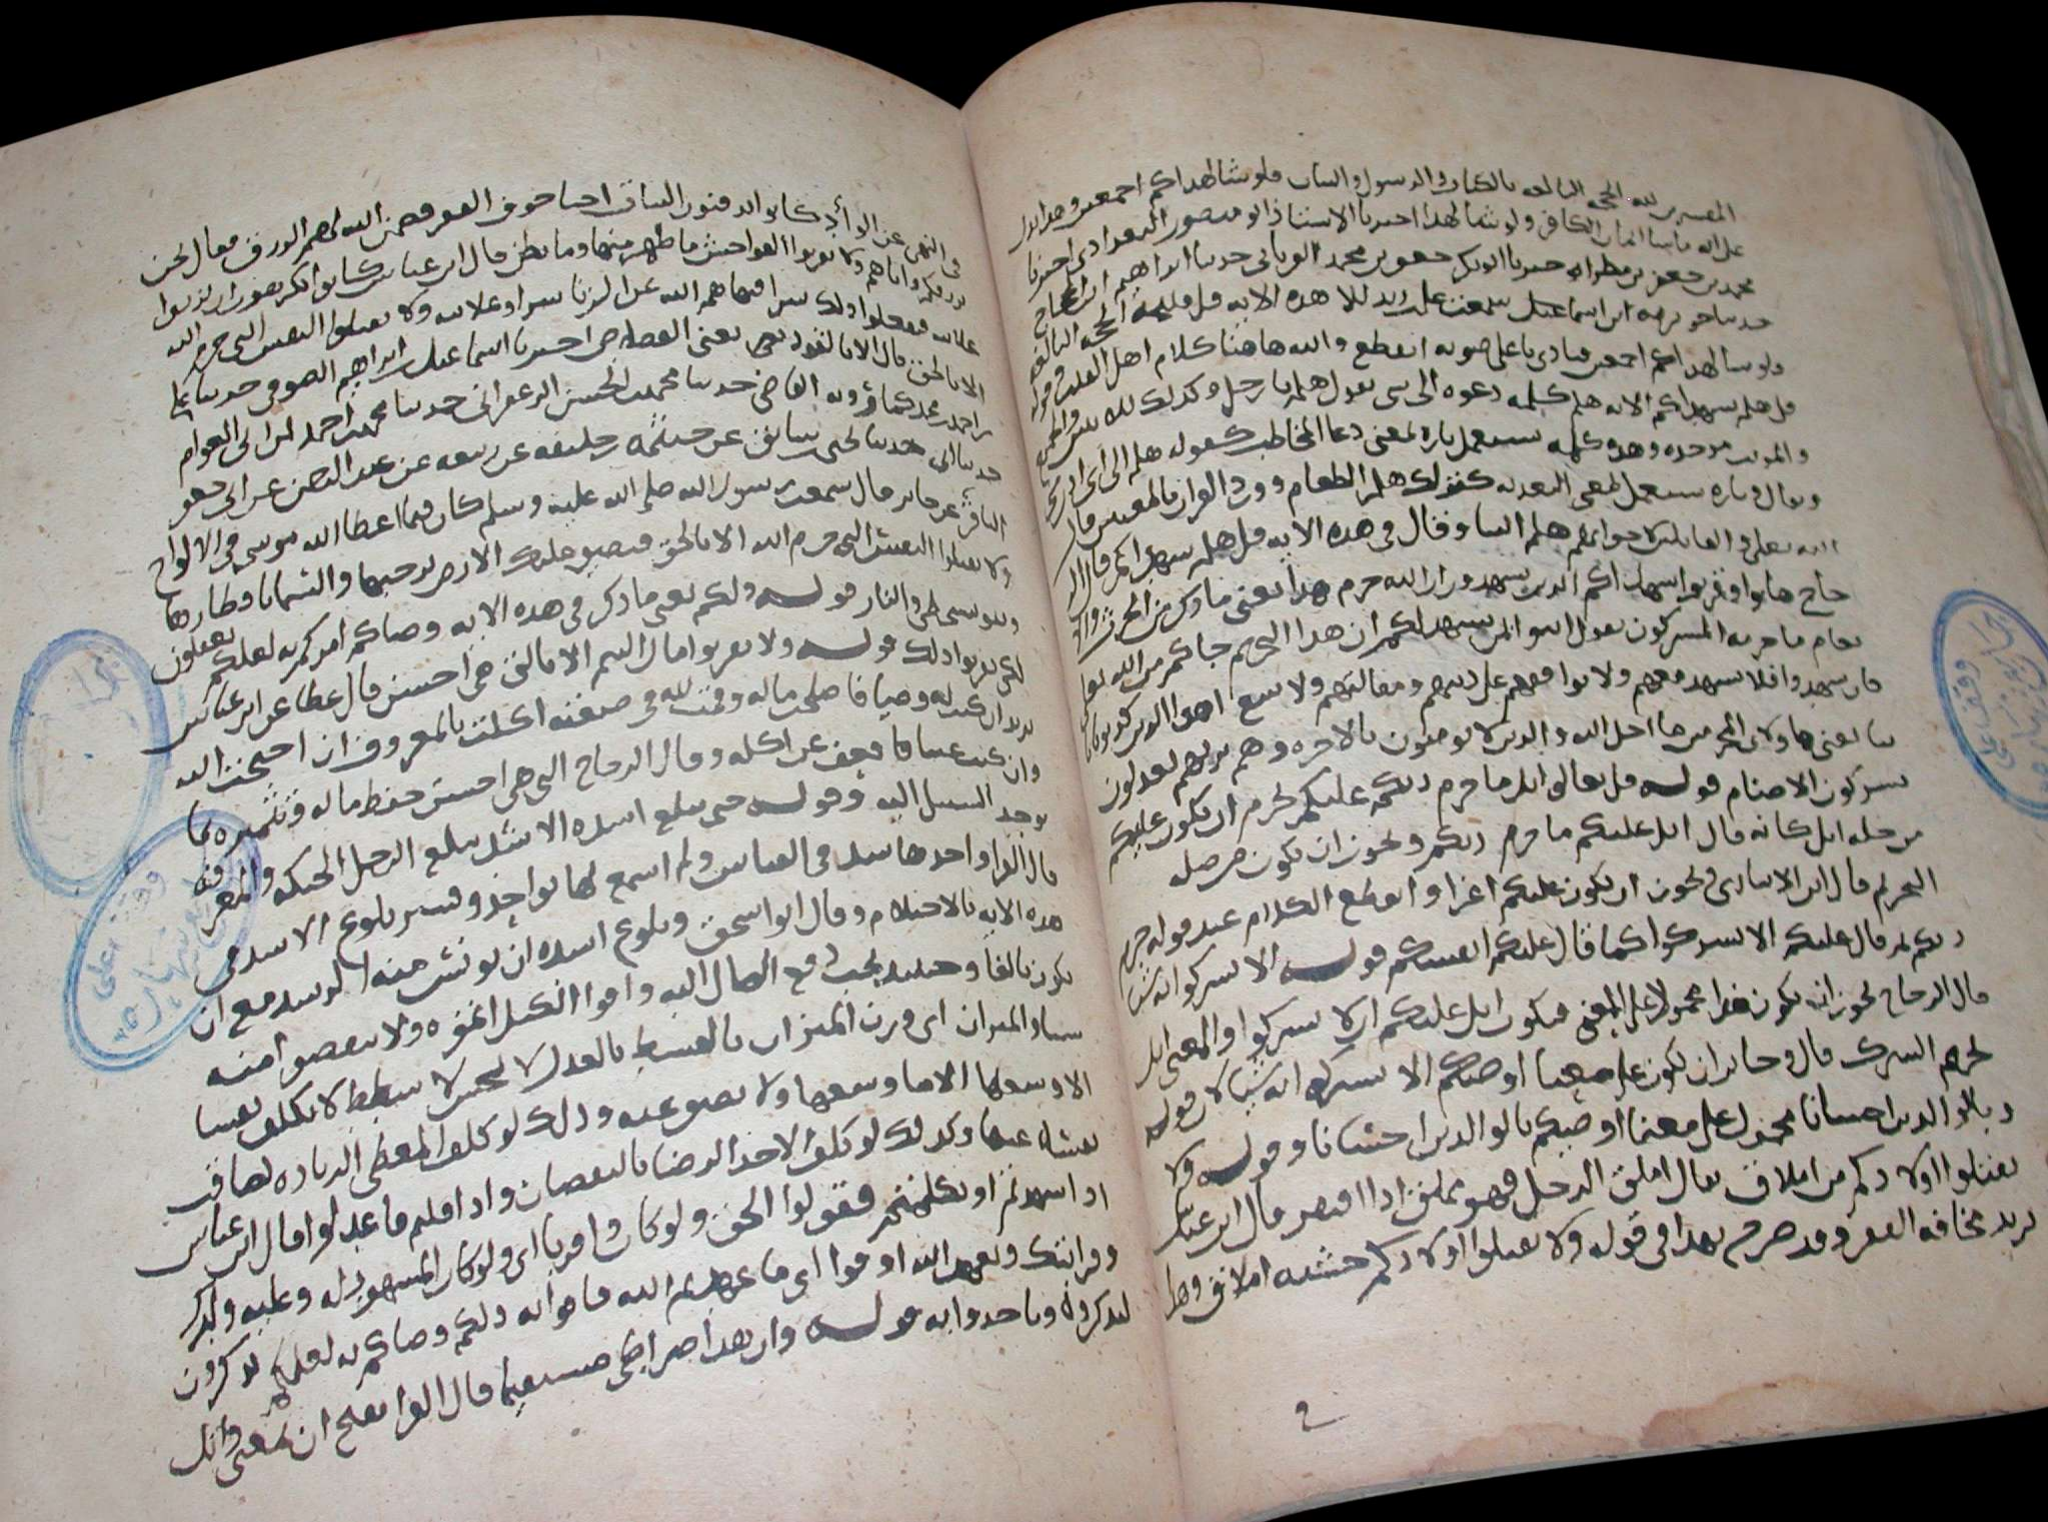 المفسرين لله الحجة البالغة بالكتاب والرسول والبيان فلو شا لهداكم اجمعين وهذا يدل
على انه ما شا ايمان الكافر ولو شا لهداه اخبرنا الاستاذ ابو منصور البغدادي اخبرنا
محمد بن جعفر بن مطر حدثنا ابو بكر جعفر بن محمد الفريابي حدثنا ابراهيم بن الحجاج
حدثنا جويرية ابن اسماعيل سمعت علي بن زيد تلا هذه الاية قل فلله الحجة البالغة
ولو شا لهداكم اجمعين فنادى باعلى صوته انقطع والله هاهنا كلام اهل القدر وقوله
قل هلم شهداكم الاية هلم كلمة دعوة الى شي يقول هلم يا رجل وكذلك للاثنين والجمع
والمونث موحدة وهذه كلمة تستعمل تارة بمعنى دعا المخاطب كقوله هلم الى اي ادن مني
وتعال وتارة تستعمل بمعنى التعدية كقولك هلم الطعام وورد القران بالمعنيين قال
الله تعالى والقائلين لاخوانهم هلم الينا وقال في هذه الاية قل هلم شهداكم قال الز
جاج هاتوا وقربوا شهداكم الذين يشهدون ان الله حرم هذا يعني ما ذكر من الحرث والا
نعام مما حرمه المشركون يقول ايتوا بمن يشهد لكم ان هذا التحريم جاكم من الله تعالى
فان شهدوا فلا تشهد معهم ولا توافقهم على دينهم ومقالتهم ولا تتبع اهوا الذين كذبوا باياتنا
يعني هاولاي المحرمين ما احل الله والذين لا يومنون بالاخرة وهم بربهم يعدلون
يشركون الاصنام قوله قل تعالوا اتل ما حرم ربكم عليكم يجوز ان يكون عليكم
من صلة اتل كانه قال اتل عليكم ما حرم ربكم ويجوز ان يكون من صلة
التحريم قال ابن الانباري ويجوز ان يكون عليكم اغرا وانقطع الكلام عند قوله حرم
ربكم ثم قال عليكم الا تشركوا كما قال عليكم انفسكم قوله الا تشركوا به شيا
قال الزجاج يجوز ان يكون هذا محمولا على المعنى فيكون اتل عليكم ان لا تشركوا والمعنى اتل
تحريم الشرك قال وجائز ان يكون على معنى اوصيكم الا تشركوا به شيا لان قوله
وبالوالدين احسانا محمول على معنى اوصيكم بالوالدين احسانا وقوله ولا
تقتلوا اولادكم من املاق يقال املق الرجل فهو مملق اذا افتقر قال ابن عباس
يريد مخافة الفقر وقد صرح بهذا في قوله ولا تقتلوا اولادكم خشية املاق وهذا
في النهي عن الواد كانوا يدفنون البنات احيا خوف الفقر فضمن الله لهم الرزق فقال نحن
نرزقكم واياهم ولا تقربوا الفواحش ما ظهر منها وما بطن قال ابن عباس كانوا يكرهون ان يزنوا
علانية فيفعلوا ذلك سرا فنهاهم الله عن الزنا سرا وعلانية ولا تقتلوا النفس التي حرم الله
الا بالحق قال الا بالقود يعني القصاص اخبرنا اسماعيل بن ابراهيم الصوفي حدثنا علي
بن احمد بن محمد القاضي حدثنا محمد بن الحسن الزعفراني حدثنا محمد بن احمد بن ابي العوام
حدثنا ابي حدثنا يحيى بن سابق عن خيثمة بن خليفة عن ربيعة عن عبد الرحمن عن ابي جعفر
الباقر عن جابر قال سمعت رسول الله صلى الله عليه وسلم كان فيما اعطا الله موسى في الالواح
ولا تقتلوا النفس التي حرم الله الا بالحق فتضيق عليك الارض برحبها والسما باقطارها
وتبو بسخطي والنار قوله ذلكم يعني ما ذكر في هذه الاية وصاكم امركم به لعلكم تعقلون
لكي تعقلوا ذلك قوله ولا تقربوا مال اليتيم الا بالتي هي احسن قال عطا عن ابن عباس
يريد ان كنت له وصيا فاصلحت ماله وقمت لله في صيعته اكلت بالمعروف ان احتجت اليه
وان كنت غنيا فاعفف عن اكله وقال الزجاج التي هي احسن حفظ ماله وتثميره بما
يوجد السبيل اليه وقوله حتى يبلغ اشده الاشد مبلغ الرجل الحنكة والمعرفة
قال الفرا واحدها شد في القياس ولم اسمع لها بواحد وفسر بلوغ الاشد في
هذه الاية بالاحتلام وقال ابو اسحق وبلوغ اشده ان يونس منه الرشد مع ان
يكون بالغا وحينيذ يجب دفع المال اليه واوفوا الكيل اتموه ولا تنقصوا منه
شيا والميزان اي وزن الميزان بالقسط بالعدل لا بخس ولا شطط لا نكلف نفسا
الا وسعها الا ما وسعها ولا تضيق عنه وذلك لو كلف المعطي الزيادة لضاقت
نفسه عنها وكذلك لو كلف الاخذ الرضا بالنقصان واذا قلتم فاعدلوا قال ابن عباس
اذا شهدتم او تكلمتم فقولوا الحق ولو كان ذا قربى اي ولو كان المشهود له وعليه ولدك
وقرابتك وبعهد الله اوفوا اي ما عهد اليكم الله فاوفوا به ذلكم وصاكم به لعلكم تذكرون
لتذكروه وتاخذوا به قوله وان هذا صراطي مستقيما قال الفرا تفتح ان بمعنى واتل